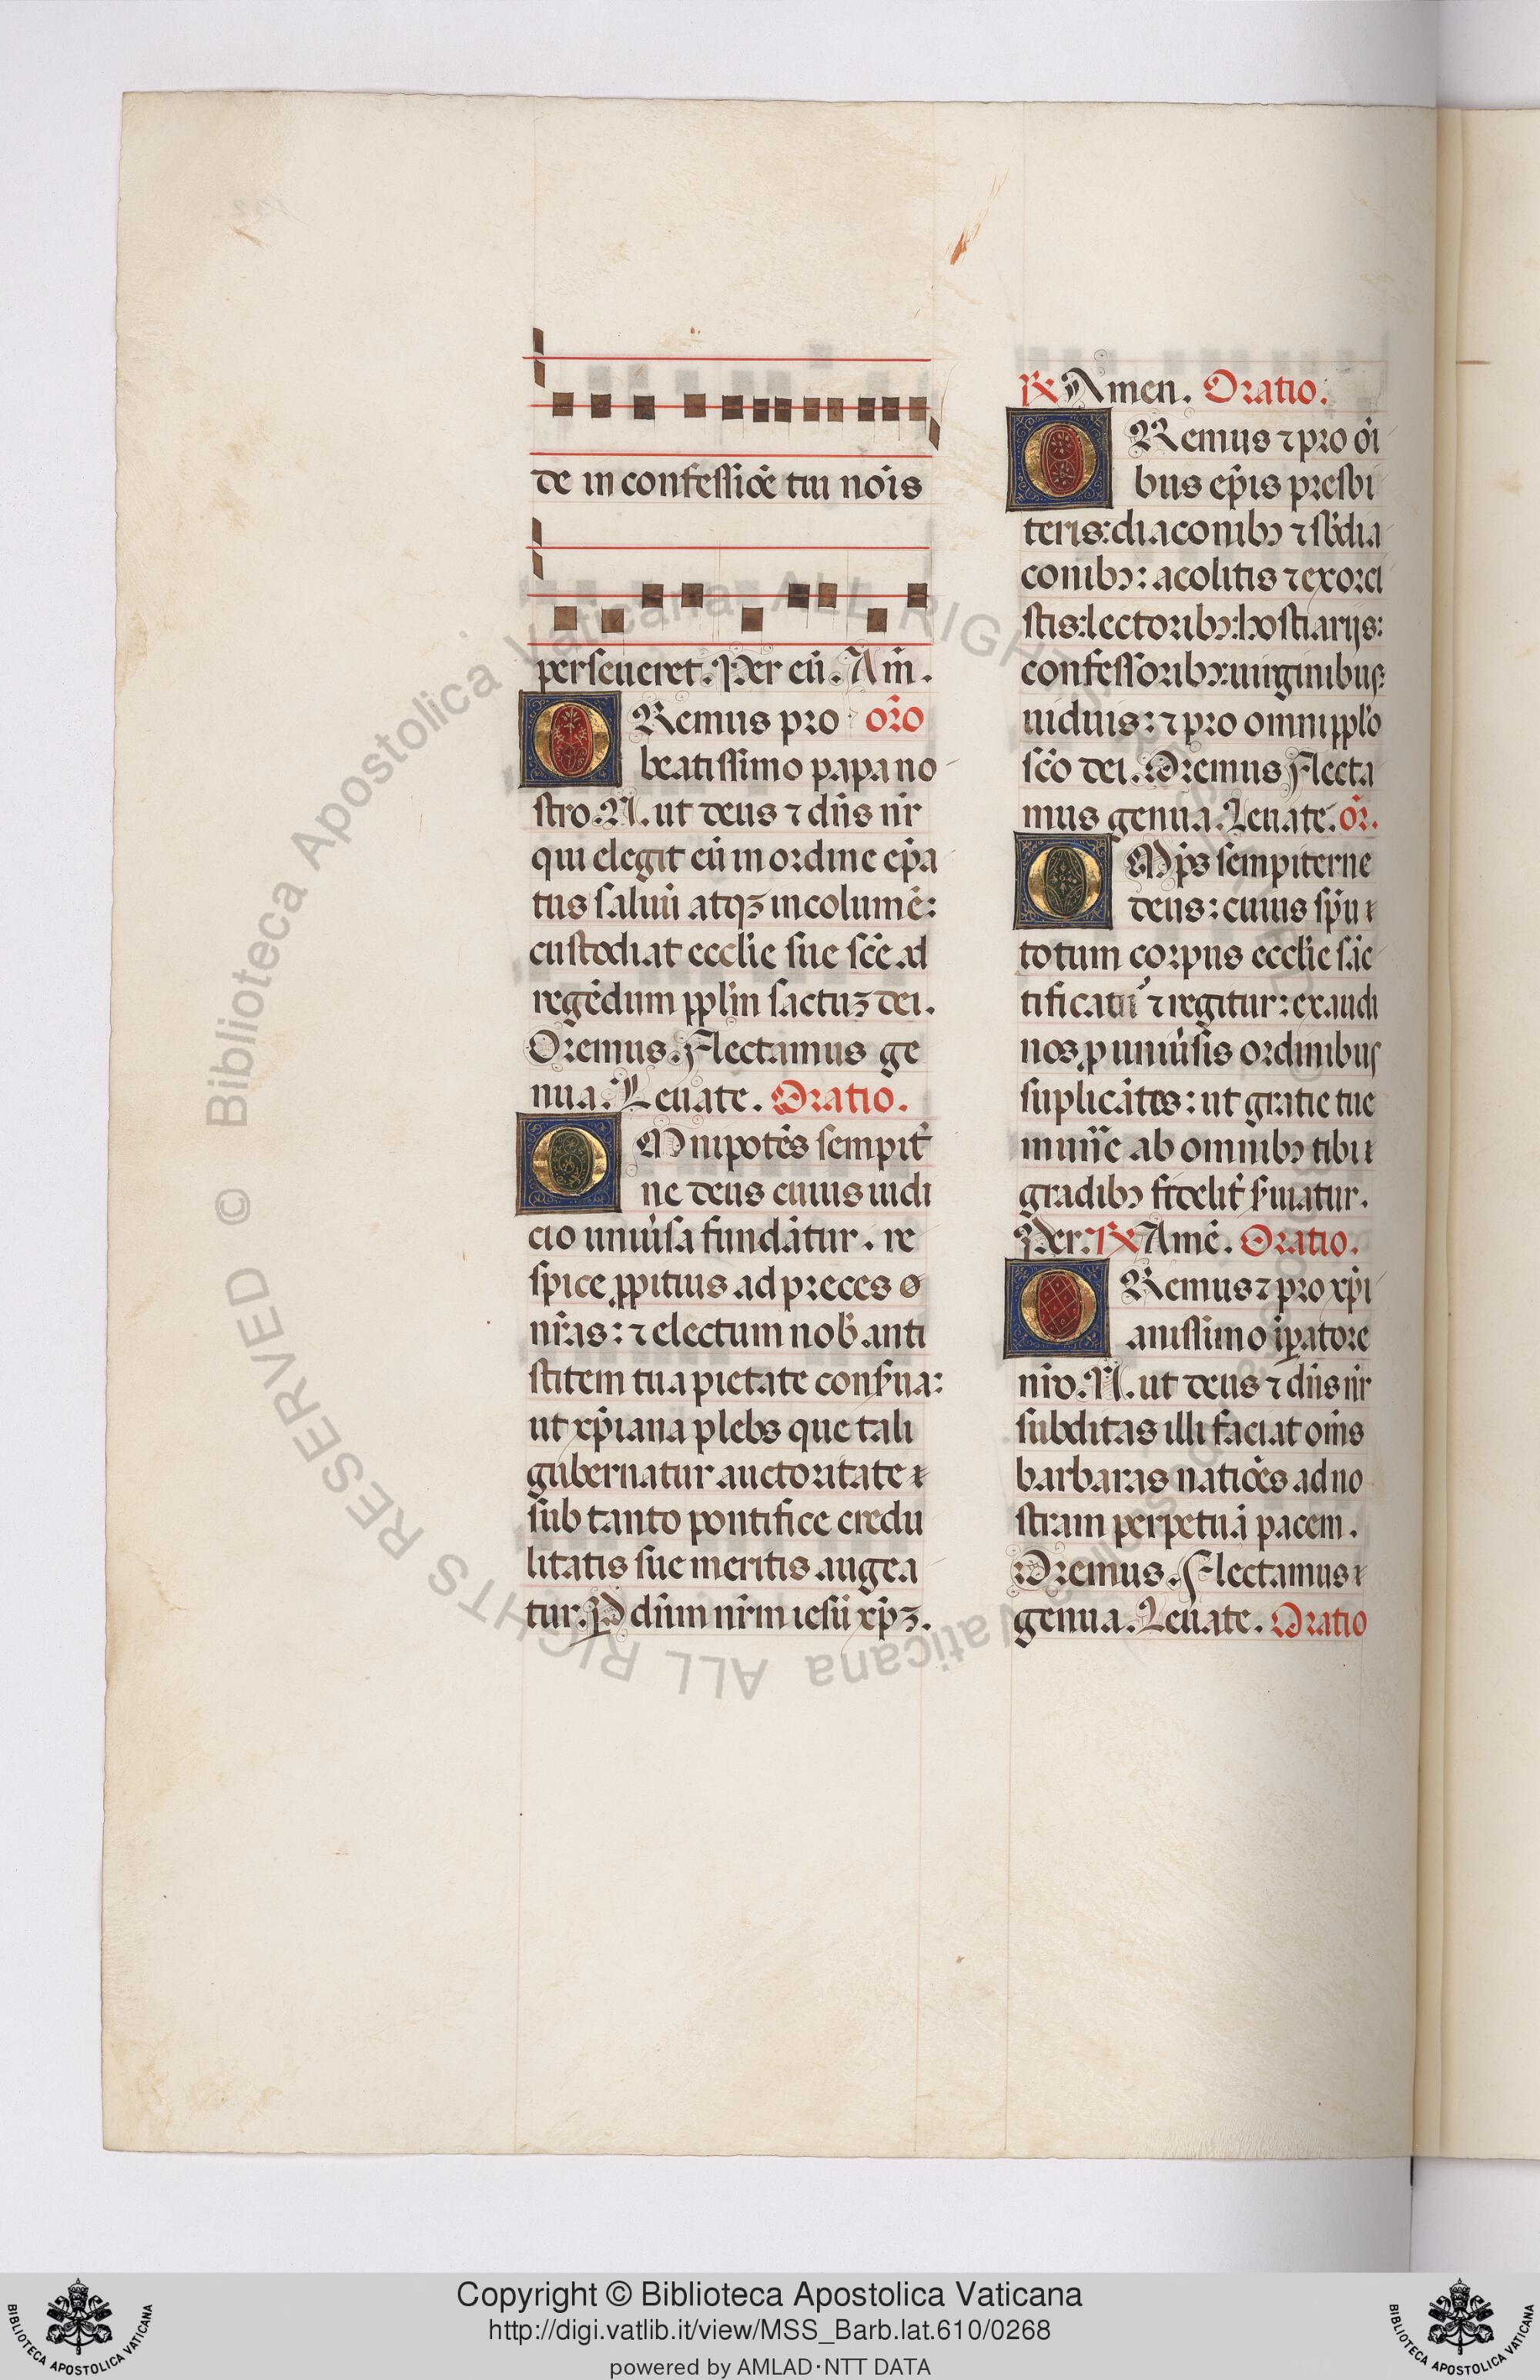 de in confessiōe tui nōis
perseueret. Per eū. Am̄.
ORemus pro or̄o
beatissimo papa no
stro. N. ut deus ⁊ dn̄s nr̄
qui elegit eū in ordine ep̄a
tus saluū atqꝫ incolumē:
custodiat ecclīe sue scē ad
regēdum ppl̄m sactuꝫ dei.
Oremus. Flectamus ge
nua. Leuate. Oratio.
OMnipotēs sempit̄
ne deus cuius iudi
cio uniūsa fundātur. re
spice ꝓpitius ad preces
nr̄as: ⁊ electum nob̄ anti
stitem tua pietate conẜua:
ut xp̄iana plebs que tali
gubernatur auctoritate
sub tanto pontifice credu
litatis sue meritis augea
tur. P dn̄m nr̄m iesū xp̄ꝫ.
℞ Amen. Oratio.
ORemus ⁊ pro oī
bus ep̄is presbi
teris: diaconibꝫ ⁊ sb̄dia
conibꝫ: acolitis ⁊ exorci
stis: lectoribꝫ: hostiarijs:
confessoribꝫ: uirginibus:
uiduis: ⁊ pro omni ppl̄o
scō dei. Oremus Flecta
mus genua. Leuate. or̄.
OMp̄s sempiterne
deus: cuius sp̄u
totum corpus ecclīe sāc
tificatu᷒ ⁊ regitur: exaudi
nos ꝓ uniūsis ordinibus
suplicātes: ut gratie tue
mun̄e ab omnibꝫ tibi
gradibꝫ fidelit̄ ẜuiatur.
Per. ℞ Amē. Oratio.
ORemus ⁊ pro xp̄i
anissimo īꝑatore
nr̄o. N. ut deus ⁊ dn̄s nr̄
subditas illi faciat om̄s
barbaras natiōes ad no
stram perpetuā pacem.
Oremus. Flectamus
genua. Leuate. Oratio
© Biblioteca Apostolica Vaticana ALL RIGHTS RESERVED
Copyright © Biblioteca Apostolica Vaticana
http://digi.vatlib.it/view/MSS_Barb.lat.610/0268
powered by AMLAD·NTT DATA
BIBLIOTECA APOSTOLICA VATICANA
BIBLIOTECA APOSTOLICA VATICANA